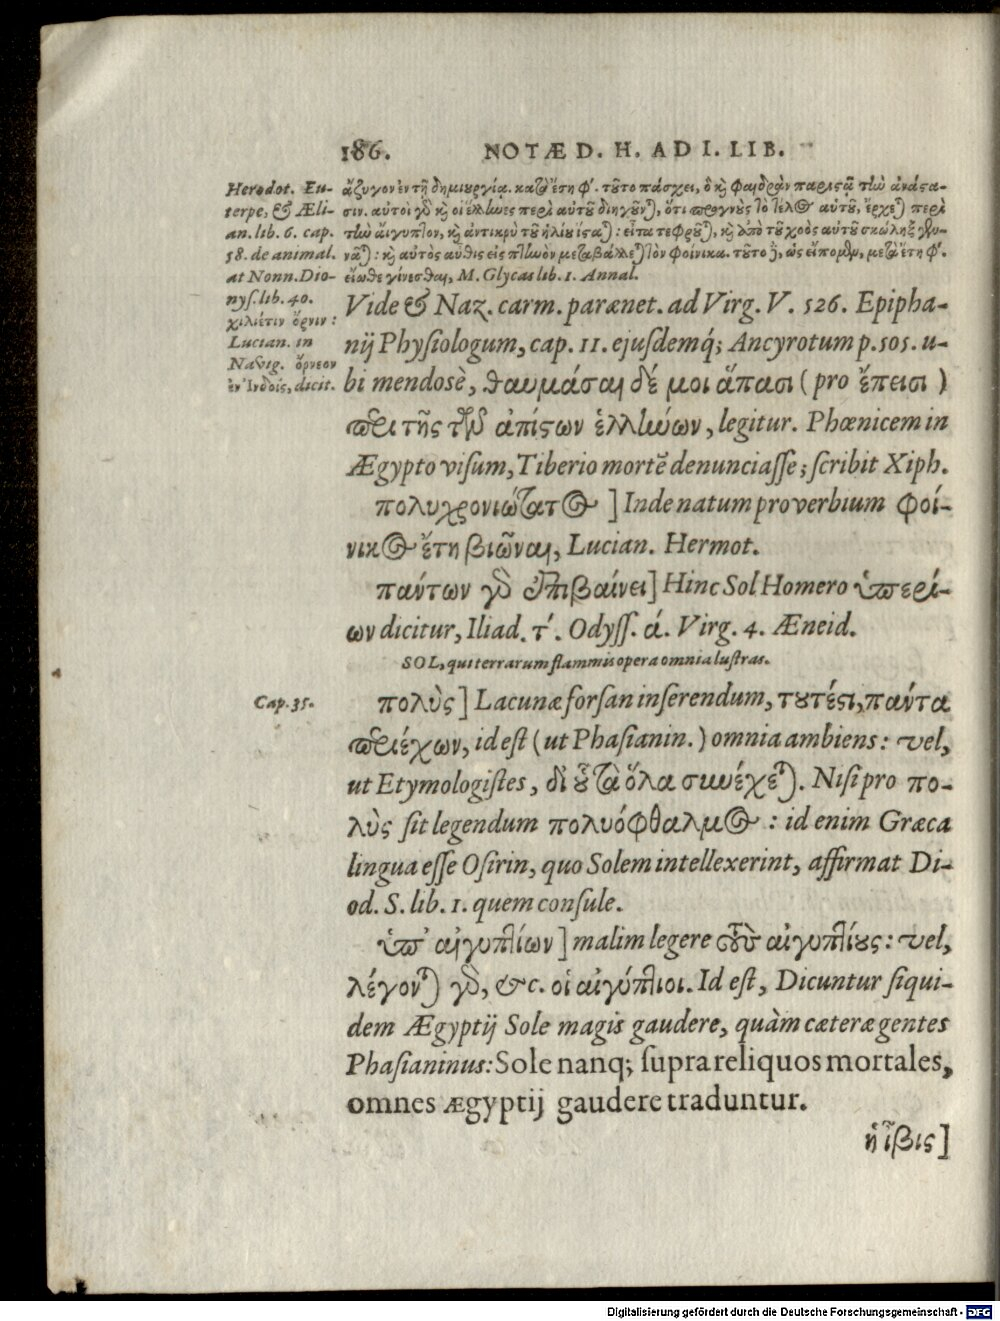 186. NOTÆ D. H. AD I. LIB.
Herodot. Eu-
terpe, & Æli-
an. lib. 6. cap.
58. de animal.
at Nonn. Dio-
nys. lib. 40.
χιλιέτιν ὄρνιν:
Lucian. in
Navig. ὄρνεον
ἐν Ἰνδοῖς, dicit.
ἄζυγον ἐν τῇ δημιουργίᾳ. κατὰ ἔτη φʹ. τοῦτο πάσχει, ὃ καὶ φαιδρὰν παριστᾷ τὴν ἀνάστα-
σιν. αὐτοὶ γὰρ καὶ οἱ ἕλληνες περὶ αὐτοῦ διηγοῦνται, ὅτι προγνοὺς τὸ τέλος αὐτοῦ, ἔρχεται περὶ
τὴν αἴγυπτον, καὶ ἀντικρὺ τοῦ ἡλίου ἵσταται: εἶτα τεφροῦται, καὶ ἀπὸ τοῦ χοὸς αὐτοῦ σκώληξ γεν-
νᾶται: καὶ αὐτὸς αὖθις εἰς πτηνὸν μεταβάλλεται τὸν φοίνικα. τοῦτο δὲ, ὡς εἴπομεν, μετὰ ἔτη φʹ.
εἴωθε γίνεσθαι, M. Glycas lib. 1. Annal.
Vide & Naz. carm. parænet. ad Virg. V. 526. Epipha-
nij Physiologum, cap. 11. ejusdemq; Ancyrotum p. 505. u-
bi mendosè, θαυμάσαι δέ μοι ἅπασι (pro ἔπεισι)
περὶ τῆς τῶν ἀπίστων ἑλλήνων, legitur. Phœnicem in
Ægypto visum, Tiberio mortē denunciasse; scribit Xiph.
πολυχρονιώτατος] Inde natum proverbium φοί-
νικος ἔτη βιῶναι, Lucian. Hermot.
πάντων γὰρ ἐπιβαίνει] Hinc Sol Homero ὑπερί-
ων dicitur, Iliad. τʹ. Odyss. ά. Virg. 4. Æneid.
SOL, qui terrarum flammis opera omnia lustras.
Cap. 35.
πολὺς] Lacunæ forsan inserendum, τουτέστι, πάντα
περιέχων, id est (ut Phasianin.) omnia ambiens: vel,
ut Etymologistes, δι' οὗ τὰ ὅλα συνέχεται. Nisi pro πο-
λὺς sit legendum πολυόφθαλμος: id enim Græca
lingua esse Osirin, quo Solem intellexerint, affirmat Di-
od. S. lib. 1. quem consule.
ὑπ' αἰγυπτίων] malim legere τοὺς αἰγυπτίους: vel,
λέγονται γὰρ, &c. οἱ αἰγύπτιοι. Id est, Dicuntur siqui-
dem Ægyptij Sole magis gaudere, quàm cæteræ gentes
Phasianinus: Sole nanq; supra reliquos mortales,
omnes ægyptij gaudere traduntur.
ἡ ἶβις]
Digitalisierung gefördert durch die Deutsche Forschungsgemeinschaft - DFG